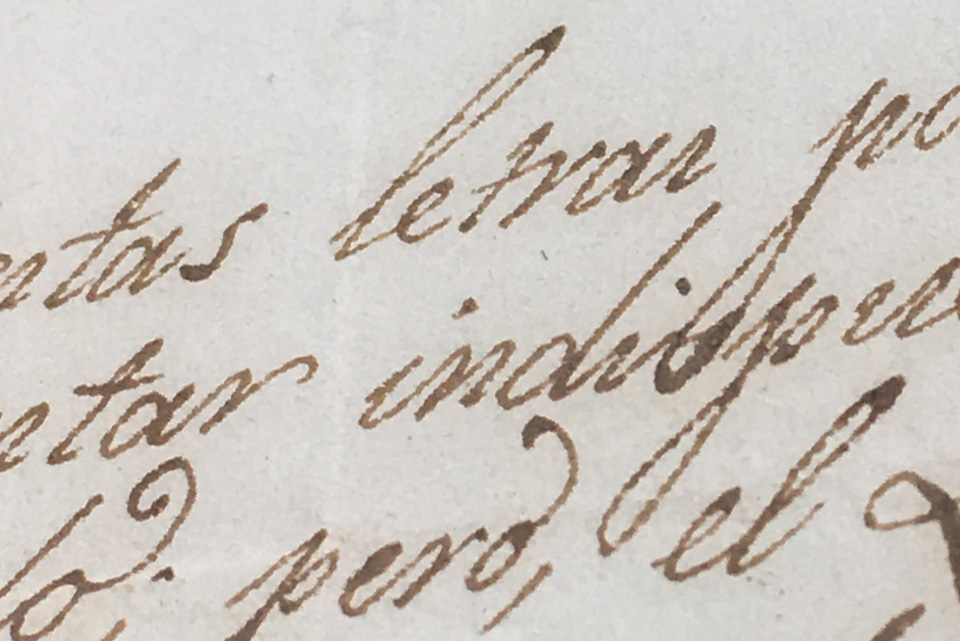 entas letras, po
etar indispue
lo, pero, el